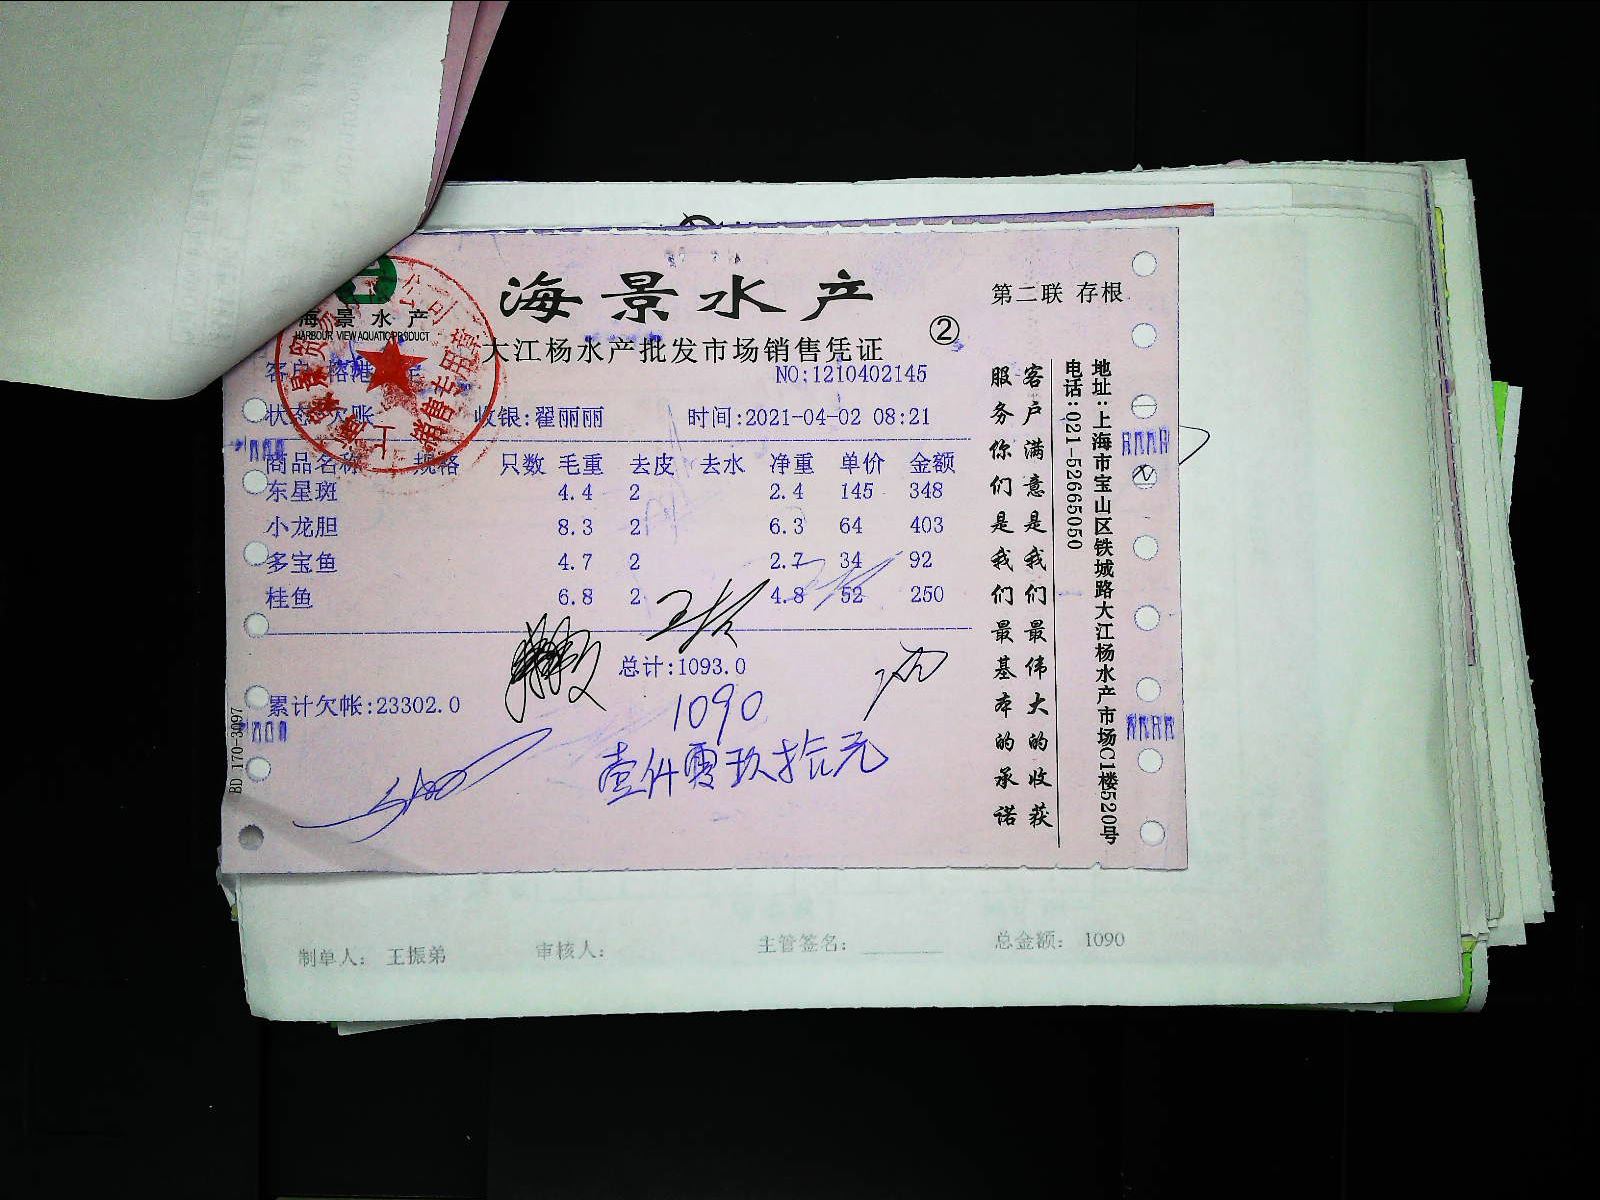 海景水产
HARBOUR VIEW AQUATIC PRODUCT
海景水产
第二联 存根
大江杨水产批发市场销售凭证
②
NO:1210402145
收银:翟丽丽
时间:2021-04-02 08:21
商品名称 规格 只数 毛重 去皮 去水 净重 单价 金额
东星斑 4.4 2 2.4 145 348
小龙胆 8.3 2 6.3 64 403
多宝鱼 4.7 2 2.7 34 92
桂鱼 6.8 2 4.8 52 250
总计:1093.0
累计欠帐:23302.0
1090
壹仟零玖拾元
BD 170-3097
客户满意是我们最伟大的收获
服务你们是我们最基本的承诺
地址:上海市宝山区铁城路大江杨水产市场C1楼520号
电话:021-52665050
销售专用章
制单人: 王振弟 审核人: 主管签名: 总金额: 1090